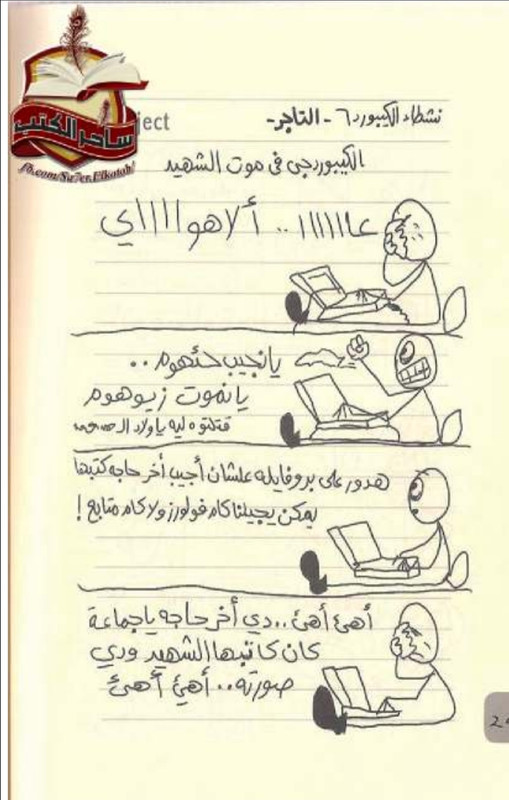 ساحر الكتب
fb.com/Sa7er.Elkotob/
ject
نشطاء الكيبورد ٦ - التاجر-
الكيبوردجى فى موت الشهيد
عاااااا.. ألاهوااااي
يا نجيب حئهوم..
يا نموت زيوهوم
قتلتوه ليه يا ولاد الـ
هدور على بروفايله علشان أجيب أخر حاجه كتبها
يمكن يجيلنا كام فولورز ولا كام متابع!
أهئ أهئ.. دي أخر حاجه ياجماعة
كان كاتبها الشهيد ودي
صورته.. أهئ أهئ